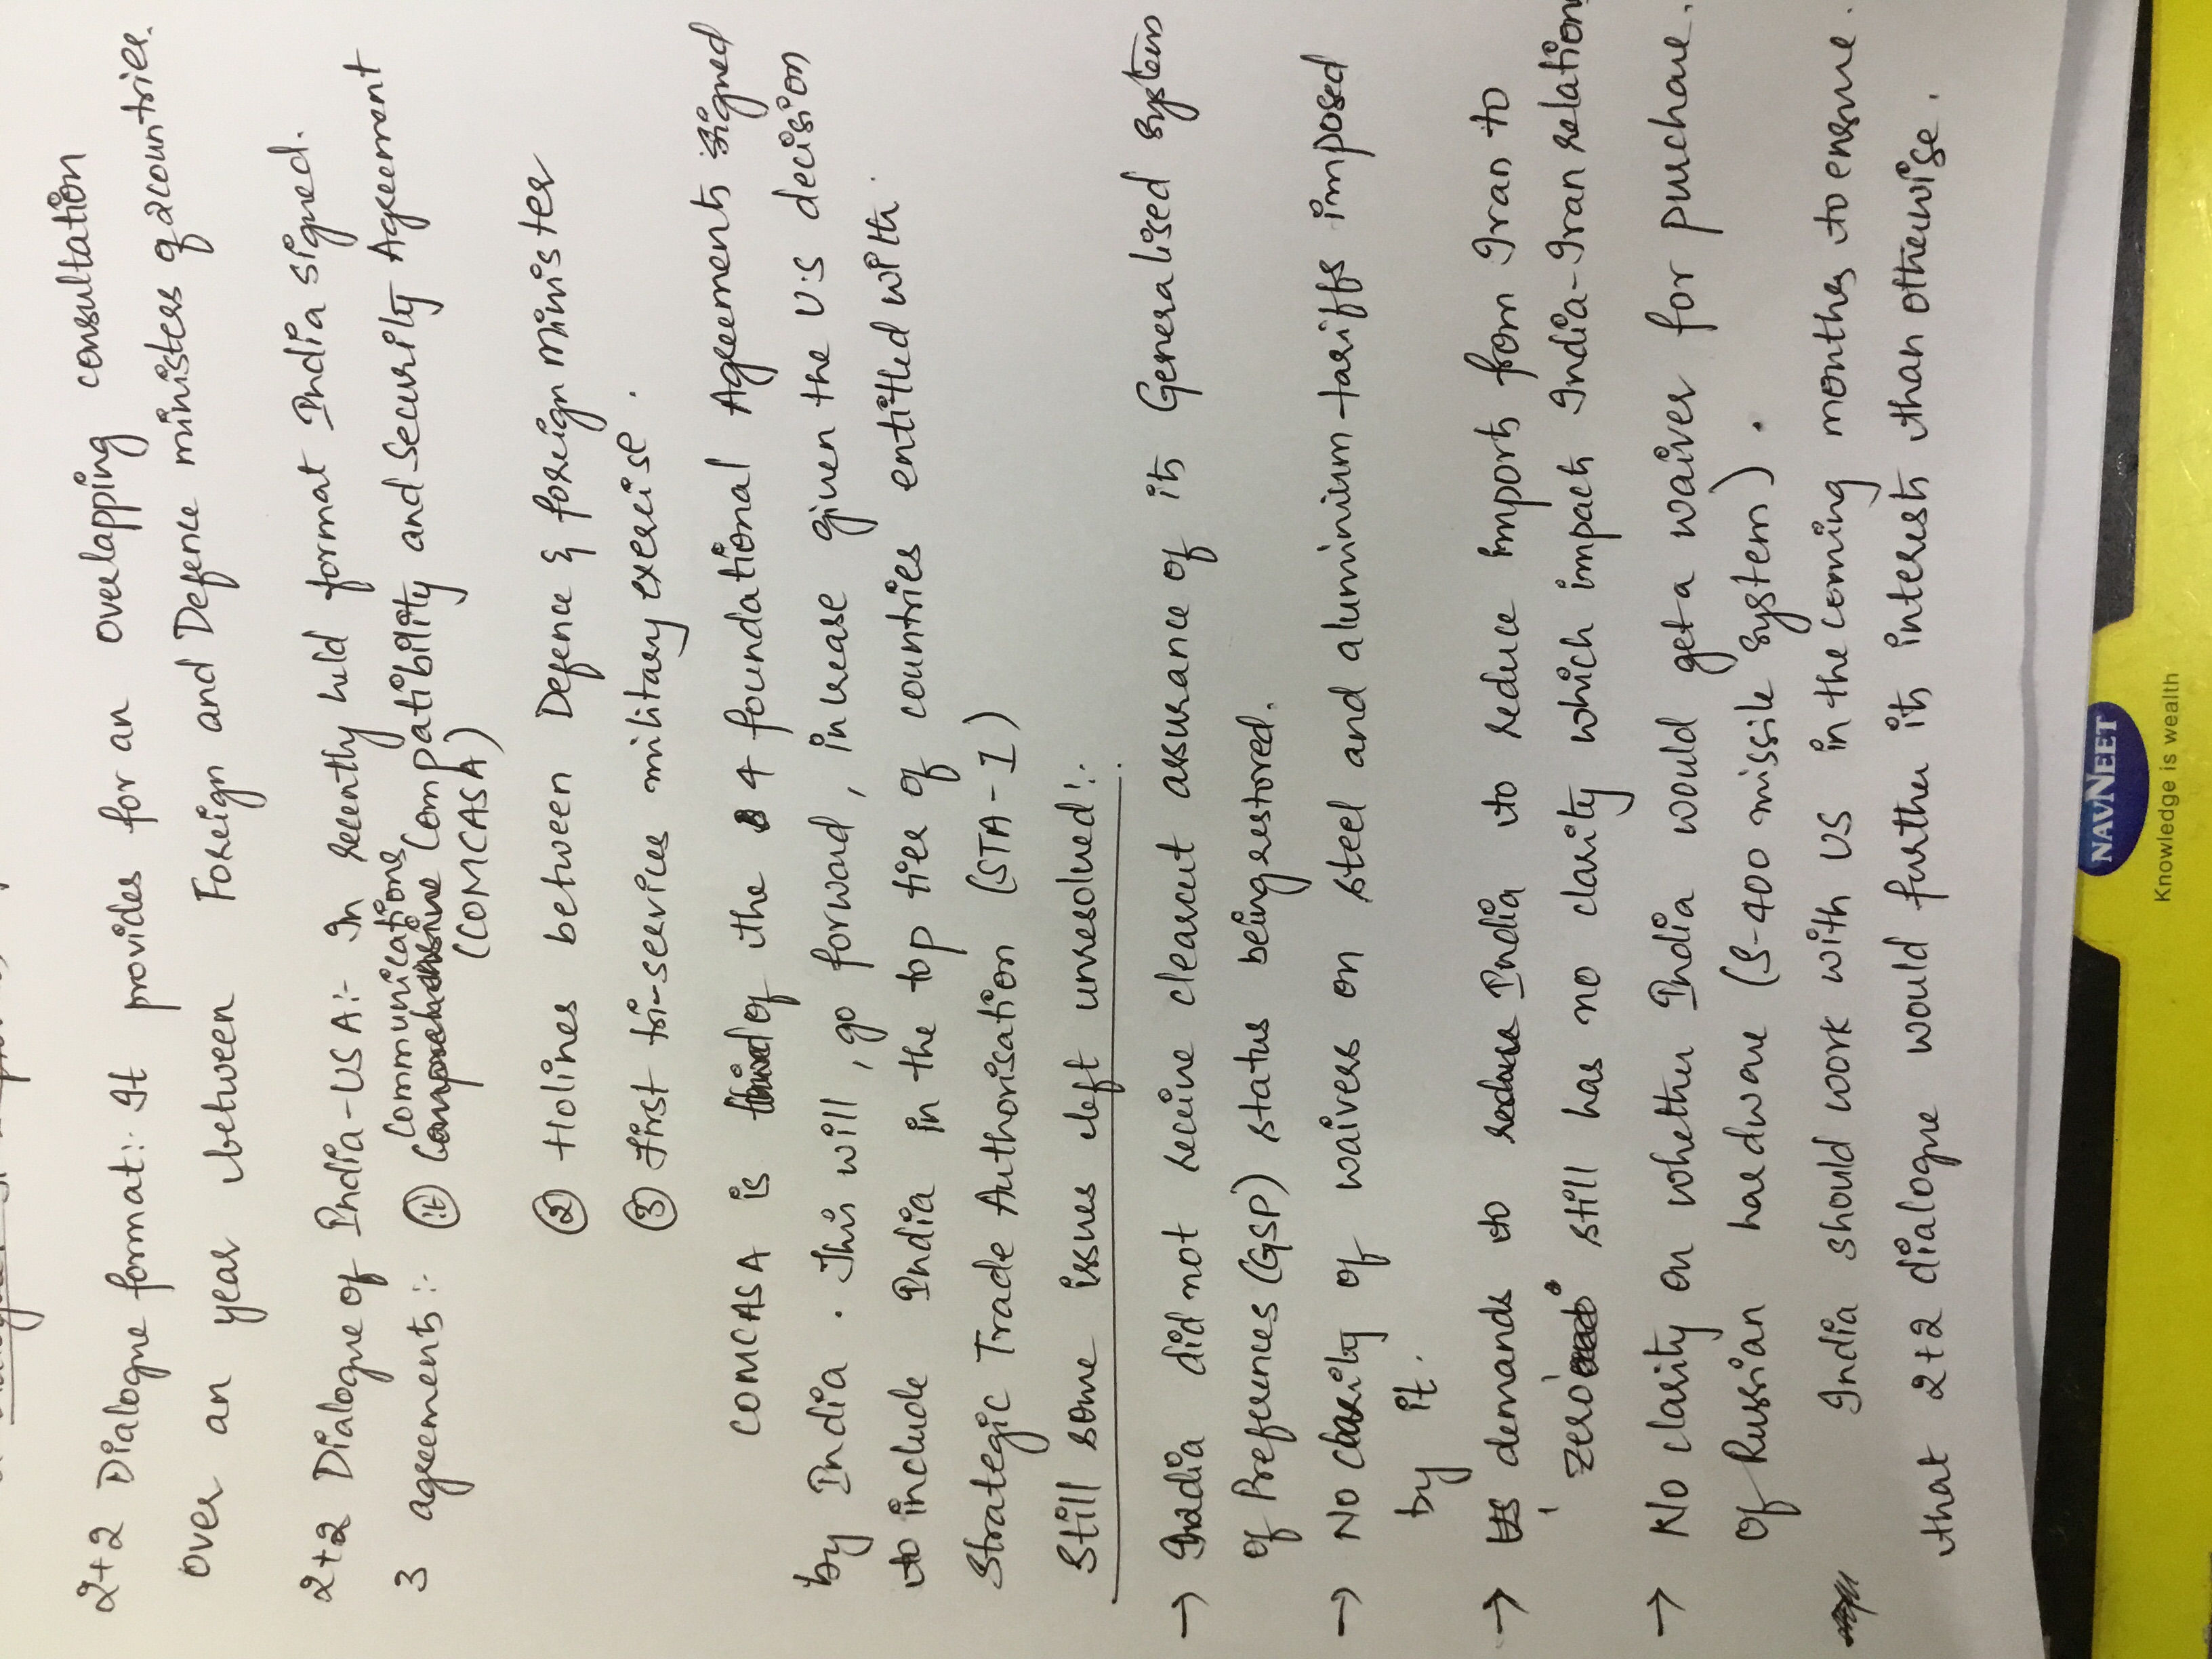 2+2 Dialogue format:- It provides for an overlapping consultation
over an year between Foreign and Defence ministers of 2 countries.
2+2 Dialogue of India-USA:- In recently held format India signed.
3 agreements:- ① Communications Compatibility and Security Agreement
(COMCASA)
② Holines between Defence & foreign minister
③ First tri-services military exercise.
COMCASA is third of the 4 foundational Agreements signed
by India. This will, go forward, increase given the U.S decision
to include India in the top tier of countries entitled with.
Strategic Trade Authorisation (STA-I)
Still some issues left unresolved:-
→ India did not receive clearcut assurance of its Generalised System
of Preferences (GSP) status being restored.
→ No clarity of waivers on steel and aluminium-tariffs imposed
by it.
→ US demands to India to reduce imports from Iran to
'zero' still has no clarity which impacts India-Iran relation
→ No clarity on whether India would get a waiver for purchase.
of Russian hardware (S-400 missile system).
India should work with US in the coming months to ensure.
that 2+2 dialogue would further its interests than otherwise.
NAVNEET
Knowledge is wealth